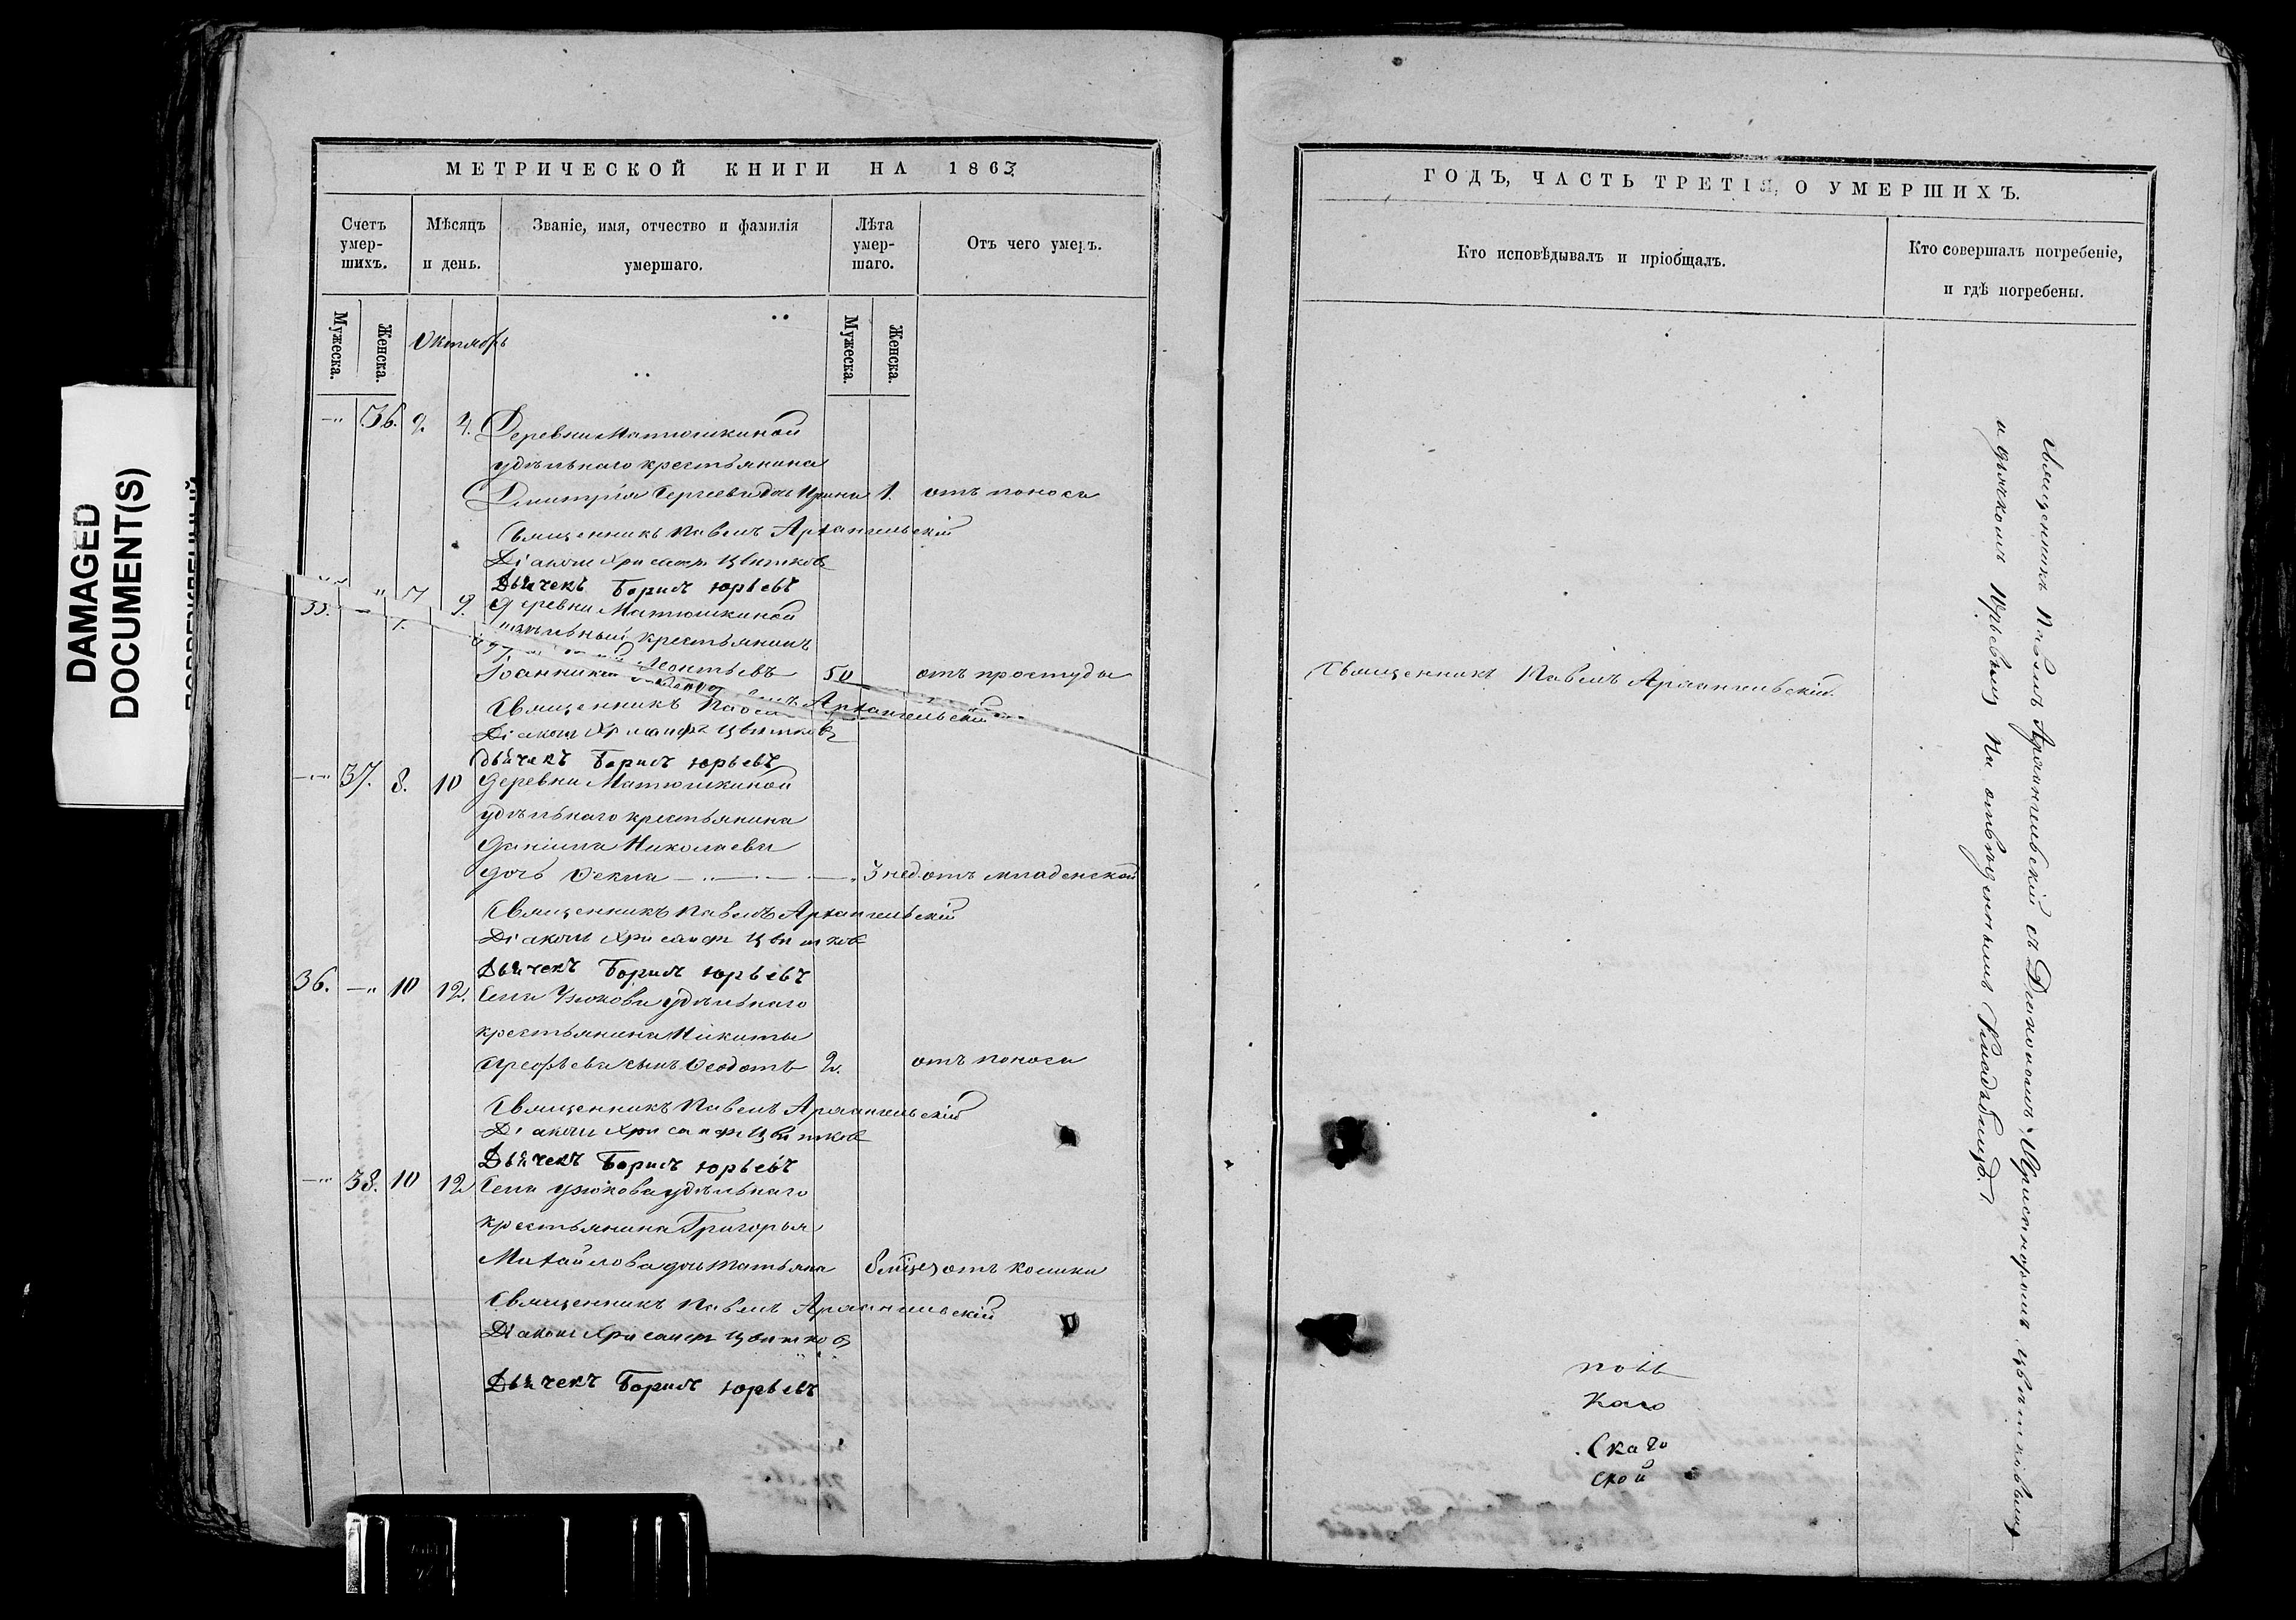 DAMAGED
DOCUMENT(S)
МЕТРИЧЕСКОЙ КНИГИ НА 1863
Счетъ умер-шихъ.
Мѣсяцъ и день.
Званіе, имя, отчество и фамилія умершаго.
Лѣта умер-шаго.
Отъ чего умеръ.
Мужеска.
Женска.
Октябрь
Мужеска.
Женска.
36. 2. 4. Деревни Матюшкиной
удѣльнаго крестьянина
Димитрія Сергеева дочь Ирина 1. отъ поноса
Священникъ Павелъ Архангельскій
Діаконъ Хрисанфъ Цвѣтковъ
Дьячекъ Борисъ Юрьевъ
35. 7 9. Деревни Матюшкиной
удѣльный крестьянинъ
Іоанникій Леонтьевъ 50 отъ простуды
Священникъ Павелъ Архангельскій
Діаконъ Хрисанфъ Цвѣтковъ
Дьячекъ Борисъ Юрьевъ
37. 8. 10 Деревни Матюшкиной
удѣльнаго крестьянина
Даніила Николаева
дочь Ѳекла 3 нед. отъ младенской
Священникъ Павелъ Архангельскій
Діаконъ Хрисанфъ Цвѣтковъ
Дьячекъ Борисъ Юрьевъ
36. 10 12. Села Узюкова удѣльнаго
крестьянина Никиты
Арефьева сынъ Ѳеодотъ 2. отъ поноса
Священникъ Павелъ Архангельскій
Діаконъ Хрисанфъ Цвѣтковъ
Дьячекъ Борисъ Юрьевъ
38. 10 12 Села Узюкова удѣльнаго
крестьянина Григорья
Михайлова дочь Татьяна 8 мѣсец отъ колики
Священникъ Павелъ Архангельскій
Діаконъ Хрисанфъ Цвѣтковъ
Дьячекъ Борисъ Юрьевъ
ГОДЪ, ЧАСТЬ ТРЕТІЯ, О УМЕРШИХЪ.
Кто исповѣдывалъ и пріобщалъ.
Кто совершалъ погребеніе,
и гдѣ погребены.
Священникъ Павелъ Архангельскій
Священникъ Павелъ Архангельскій съ Діакономъ Хрисанфомъ Цвѣтковымъ
и дьячкомъ Юрьевымъ На отведенномъ Кладбищѣ.
каго
Скаго
ской